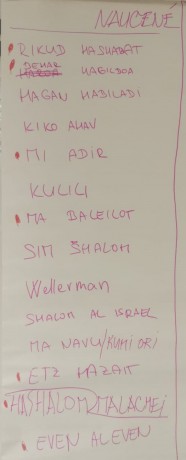 NAUČENE
• RIKUD HASHABAT
• DEHAR HAGILBOA
MAGAN HADILADI
KIKO AHAV
• MI ADIR
KULILI
• MA BALEILOT
SIM ŠHALOM
Wellerman
SHALOM AL ISRAEL
MA NAVU/KUMI ORI
• ETZ HAZAIT
• HASHALOM MALACHEI
• EVEN AL EVEN